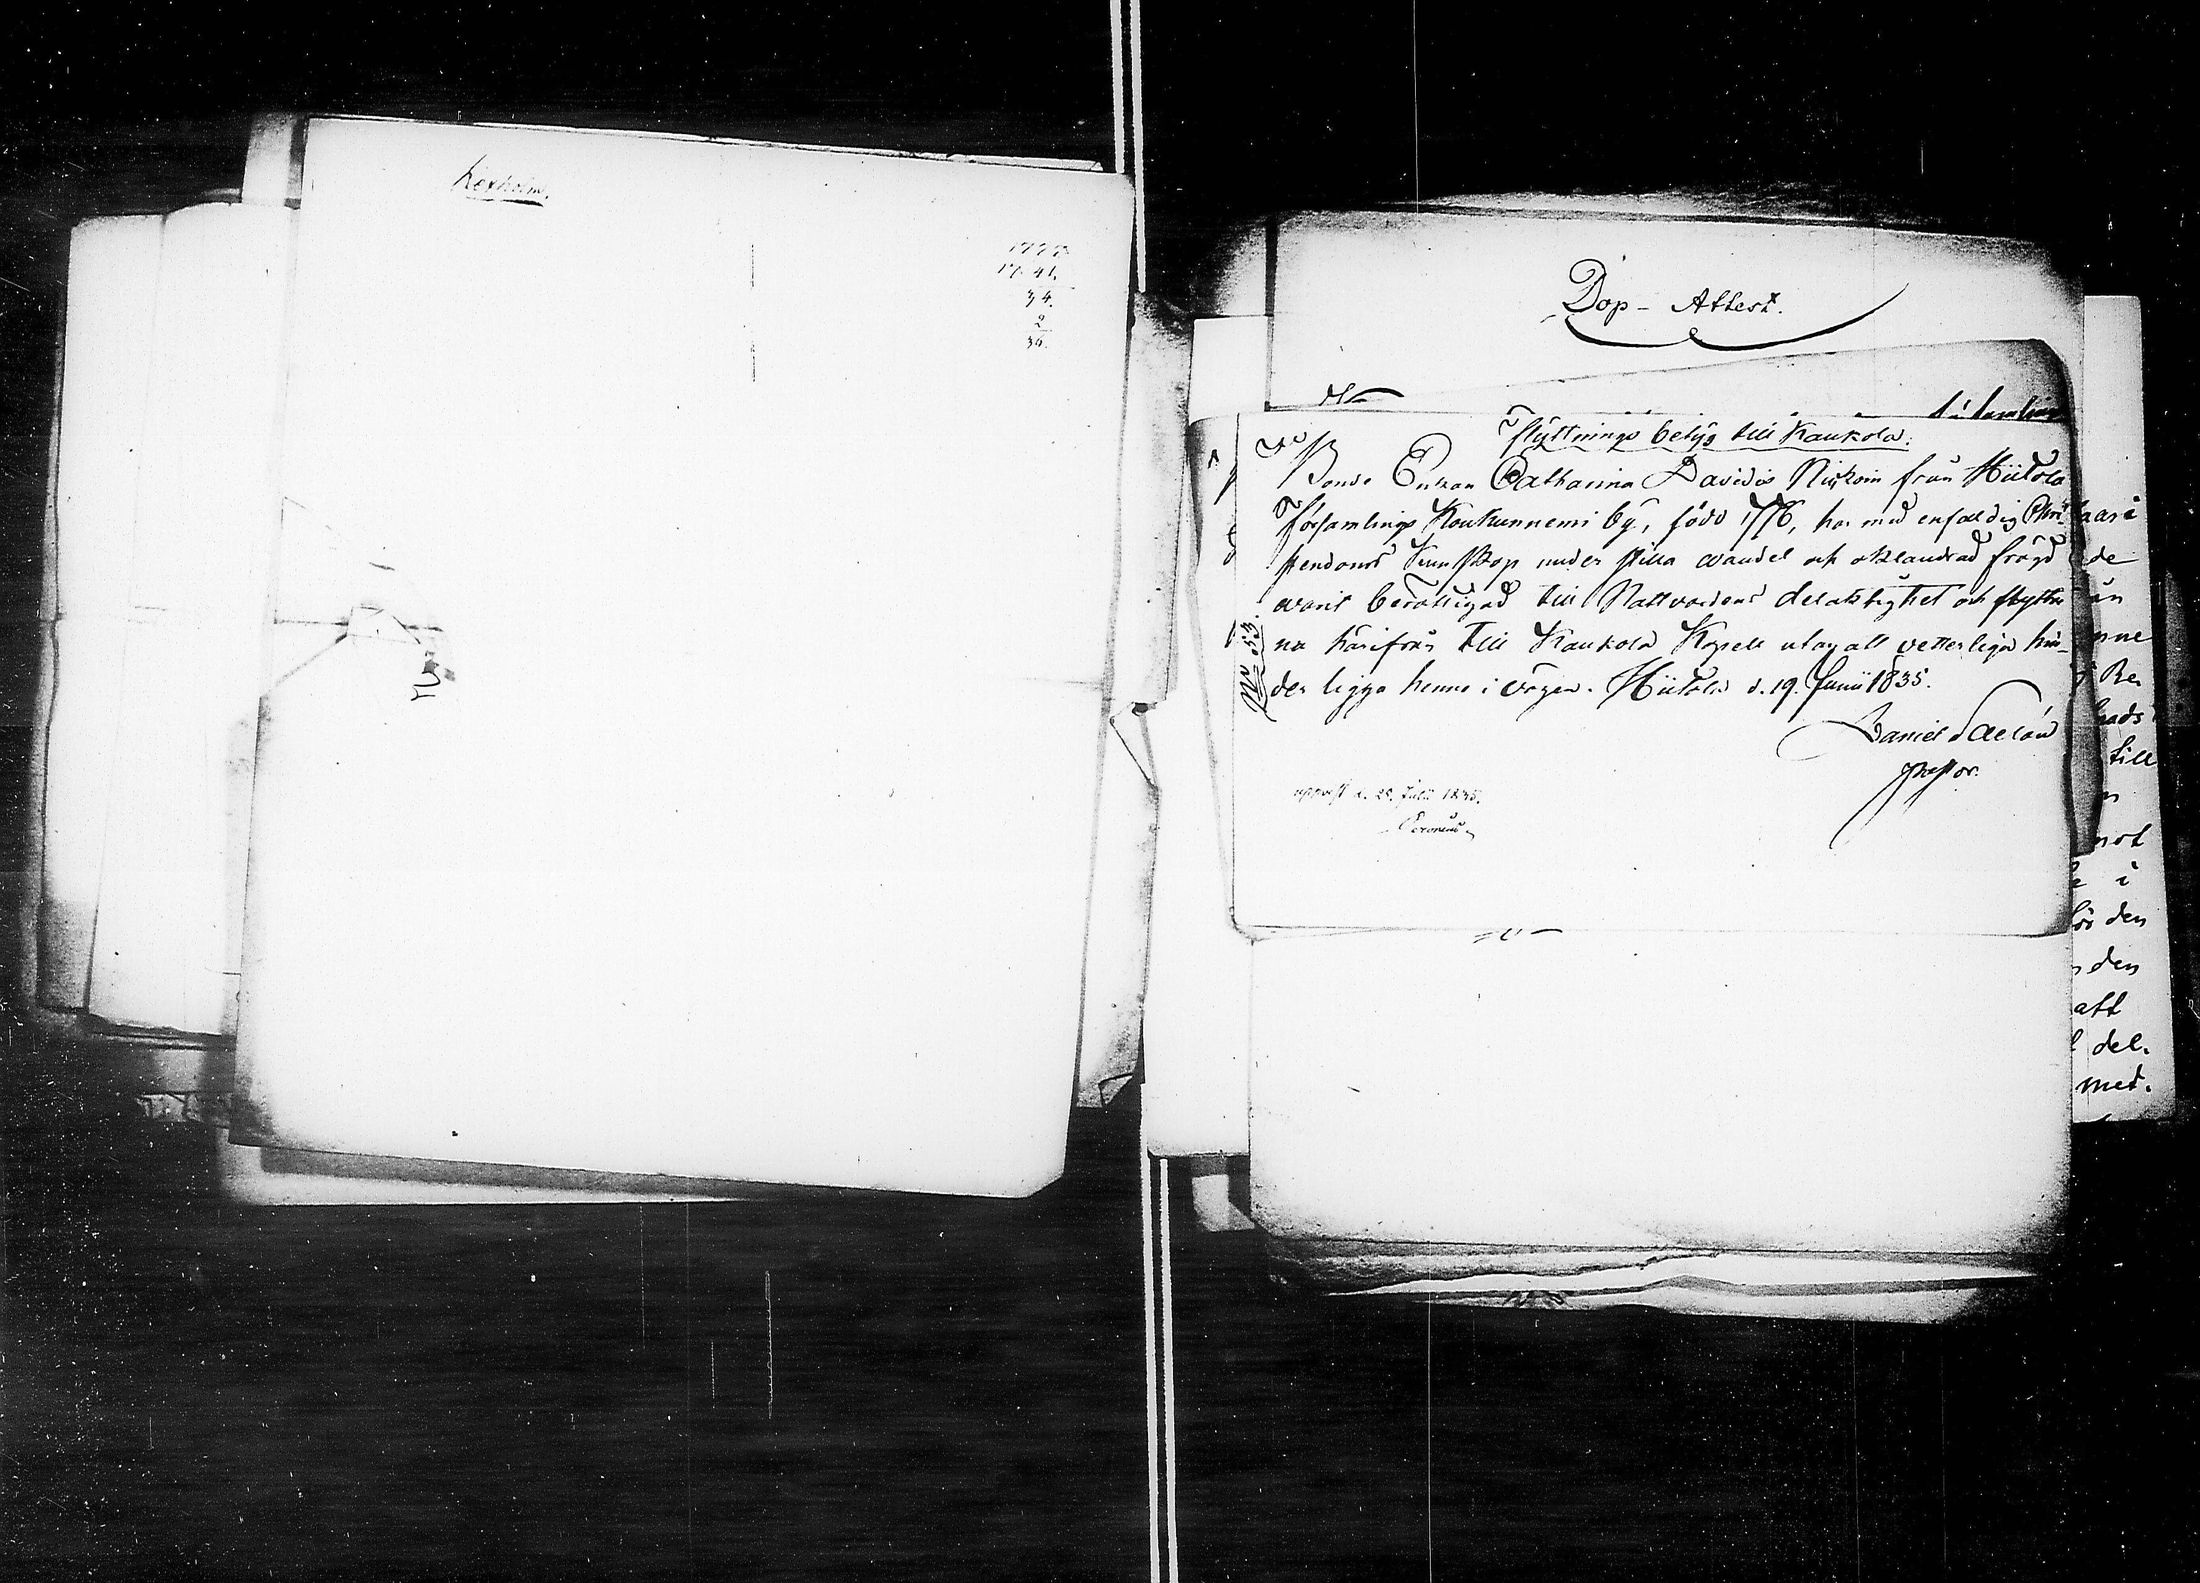 Kexholm.
1775.
1741.
34.
2
36.
Dop - Attest.
Flyttnings betyg till Kaukola.
Bonde Enkan Catharina Davidsd. Niskoin från Hiitola
församlings Koukunnemi by, född 1776, har med enfaldig Chri-
stendoms Kunskap under stilla wandel och oklandrad frägd
warit berättigad till Nattvardens delaktighet och flyttar
nu härifrån till Kaukola Kapell utan att vetterliga hin-
der ligga henne i vägen. Hiitola d. 19. Junii 1835.
Daniel
pastor.
No 53.
uppvist d. 28. Julii 1835.
aari
de
ån
nne
Be
hads
till
not
i
för den
den
att
del.
med.